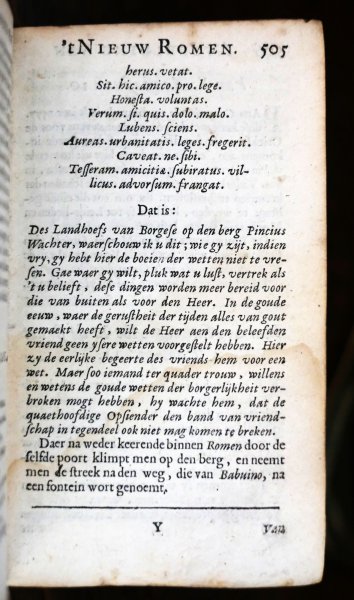 'tNIEUW ROMEN. 505
herus. vetat.
Sit. hic. amico. pro. lege.
Honeſta. voluntas.
Verum. ſi. quis. dolo. malo.
Lubens. ſciens.
Aureas. urbanitatis. leges. fregerit.
Caveat. ne. ſibi.
Teſſeram. amicitiæ. ſubiratus. vil-
licus. advorſum. frangat.
Dat is:
Des Landhoefs van Borgeſe op den berg Pincius
Wachter, waerſchouw ik u dit; wie gy zijt, indien
vry, gy hebt hier de boeien der wetten niet te vre-
ſen. Gae waer gy wilt, pluk wat u luſt, vertrek als
't u belieft, deſe dingen worden meer bereid voor
die van buiten als voor den Heer. In de goude
eeuw, waer de geruſtheit der tijden alles van gout
gemaekt heeft, wilt de Heer aen den beleefden
vriend geen yſere wetten voorgeſtelt hebben. Hier
zy de eerlijke begeerte des vriends hem voor een
wet. Maer ſoo iemand ter quader trouw, willens
en wetens de goude wetten der borgerlijkheit ver-
broken mogt hebben, hy wachte hem, dat de
quaethoofdige Opſiender den band van vriend-
ſchap in tegendeel ook niet mag komen te breken.
Daer na weder keerende binnen Romen door de
ſelfde poort klimpt men op den berg, en neemt
men de ſtreek na den weg, die van Babuino, na
een fontein wort genoemt.
Y Van